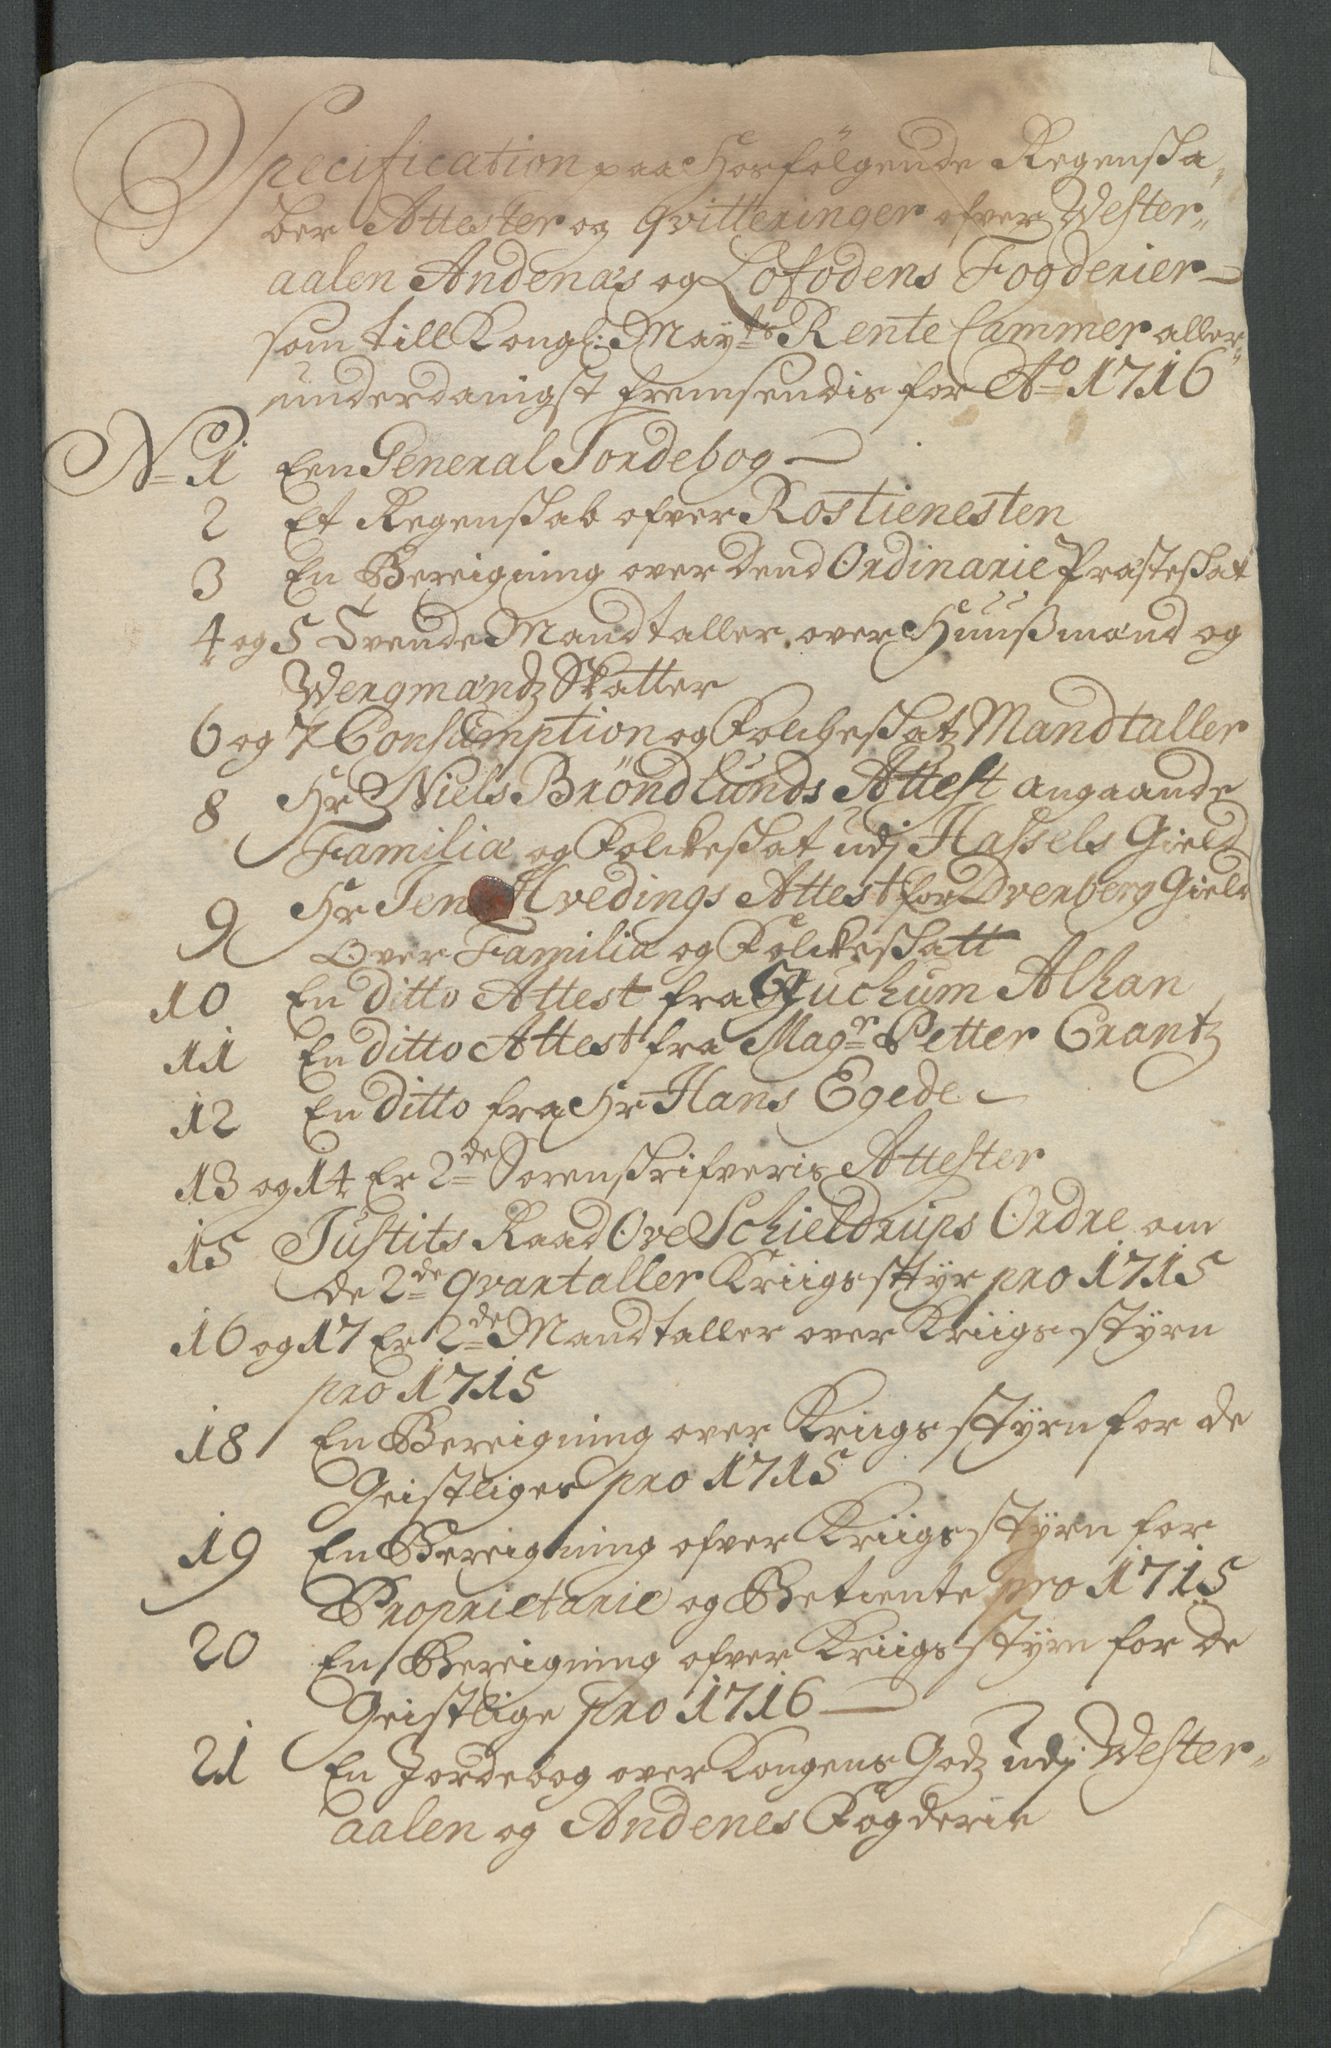 Specification paa Hosfölgende Regenska-
ber Attester og qvitteringer ofver Wester-
aalen Andenæs og Lofodens Fogderier
som till Kongl: May:ts Rente Cammer aller-
underdanigst fremsendis for Ao 1716
No 1 Een General Jordebog
2 Et Regenskab ofver Rostienesten
3 En Bereigning over dend Ordinarie Præsteskat
4 og 5 Tvende Mandtaller over Huusmænd og
Wergmandz Skatter
6 og 7 Consumption og Folcheskatz Mandtaller
8 Hr Niels Bröndlunds Attest angaande
Familiæ og Folckeskat udj Hassels Gield
9 Hr Jens Hvedings Attest for Overberg Gield
Over Familiæ og Folckeskatt
10 En ditto Attest fra Hr Juchum Alhan
11 En ditto Attest fra Magr Petter Crantz
12 En ditto fra Hr Hans Egede
13 og 14 Er 2de Sorenskrifveris Attester
15 Justits Raad Ove Schieldrups Ordre om
de 2de qvartaller Kriigsstyr pro 1715
16 og 17 Er 2de Mandtaller over Kriigs styrn
pro 1715
18 En Bereigning over Kriigs styrn for de
Geistliges pro 1715
19 En Bereigning ofver Kriigs styrn for
Proprietarie og Betiente pro 1715
20 En Bereigning ofver Kriigs styrn for de
Geistlige pro 1716
21 En Jordebog over Kongens Godz udj Wester-
aalen og Andenes Fogderie